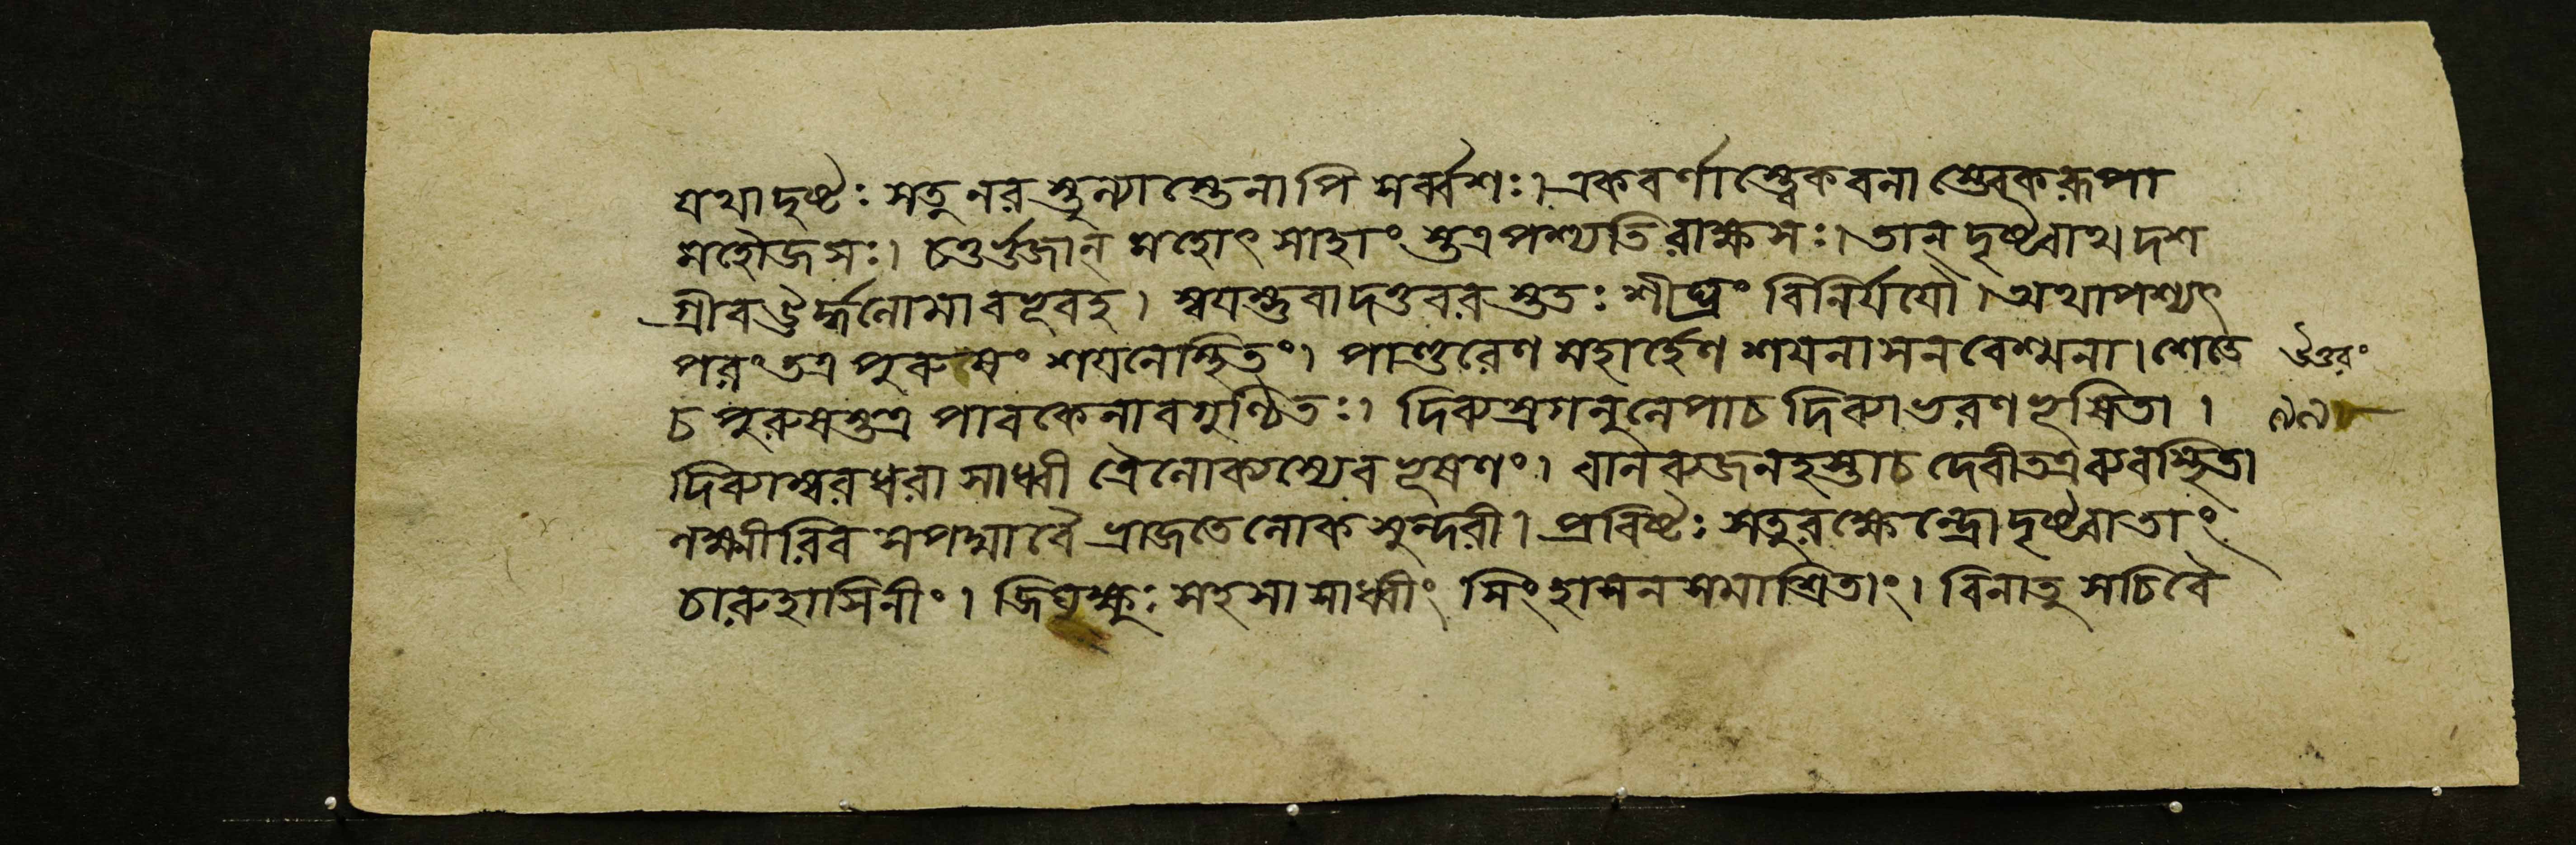 যথাদৃষ্টঃ সতু নরস্তুল্যাস্তেনাপি সর্ব্বশঃ। একবর্ণাস্ত্বেকবলা একরূপা
মহৌজসঃ। চতুর্ভুজান্ মহোৎসাহাংস্তত্রপশ্যতি রাক্ষসঃ। তান্ দৃষ্ট্বাথ দশ
গ্রীবঊর্দ্ধলোমা বভূবহ। স্বয়ম্ভুবাদত্তবরস্ততঃ শীঘ্রং বিনির্যযৌ। অথাপশ্যৎ
পরং তত্র পুরুষং শয়নেস্থিতং। পাণ্ডুরেণ মহার্হেণ শয়নাসনবেশ্মনা। শেতে
চ পুরুষস্তত্র পাবকেনাবগুণ্ঠিতঃ। দিব্যস্রগনুলেপাচ দিব্যাভরণভূষিতা।
দিব্যাম্বরধরা সাধ্বী ত্রৈলোক্যস্যেব ভূষণং। বালব্যজনহস্তাচ দেবীতত্রব্যবস্থিতা
লক্ষ্মীরিব সপদ্মাবৈ ভ্রাজতেলোকসুন্দরী। প্রবিষ্টঃ সতুরক্ষেন্দ্রোদৃষ্ট্বাতাং
চারুহাসিনীং। জিঘৃক্ষুঃ সহসা সাধ্বীং সিংহাসনসমাশ্রিতাং। বিনাতু সচিবৈ
উত্তরং